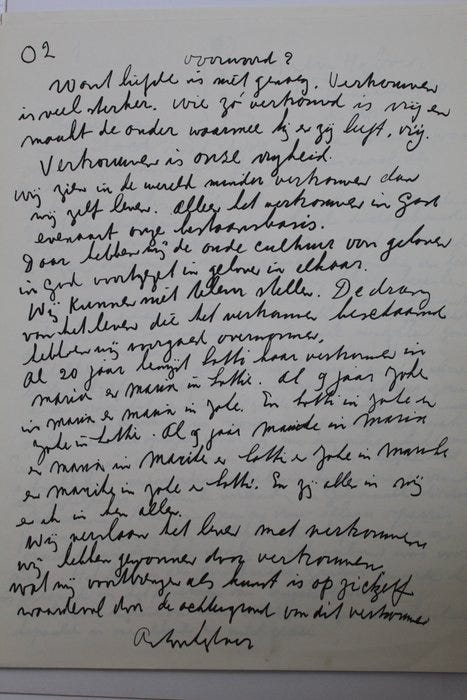 02
voorwoord?
Want liefde is niet genoeg. Vertrouwen
is veel sterker. Wie zó vertrouwd is vrij en
maakt de ander waarmee hij en zij leeft, vrij.
Vertrouwen is onze vrijheid.
Wij zien in de wereld minder vertrouwen dan
wij zelf leven. Alleen het vertrouwen in God
evenaart onze bestaansbasis.
Daar hebben wij de oude cultuur van geloven
in God voortgezet in geloven in elkaar.
Wij kunnen niet teleur stellen. De drang
van het leven die het vertrouwen beschaamd
hebben wij voorgoed overwonnen.
Al 20 jaar lengt Lotti haar vertrouwen in
maria en maria in Lotti. Al 9 jaar Jode
in maria en maria in Jode. En Lotti in Jode en
Jode in Lotti. Al 9 jaar Marike in Maria
en maria in Marike en Lotti en Jode in Marike
en Marike in Jode en Lotti. En zij allen in mij
en ik in hen allen.
Wij verslaan het leven met vertrouwen
wij hebben gewonnen door vertrouwen,
wat wij voortbrengen als kunst is op zichzelf
waardevol door de achtergrond van dit vertrouwen